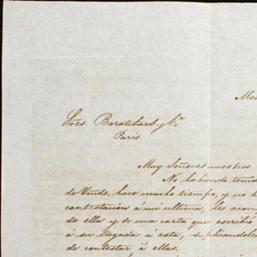 Mes
Sres. Baratchard y Ca.
Paris
Muy Señores nuestros
No habiendo tenido
de Vmds, hace mucho tiempo, y no h
contestacion á mi ultima, les acom
de ella y de una carta que escribó
á su llegada á esta, suplicandole
de contestar á ellas.